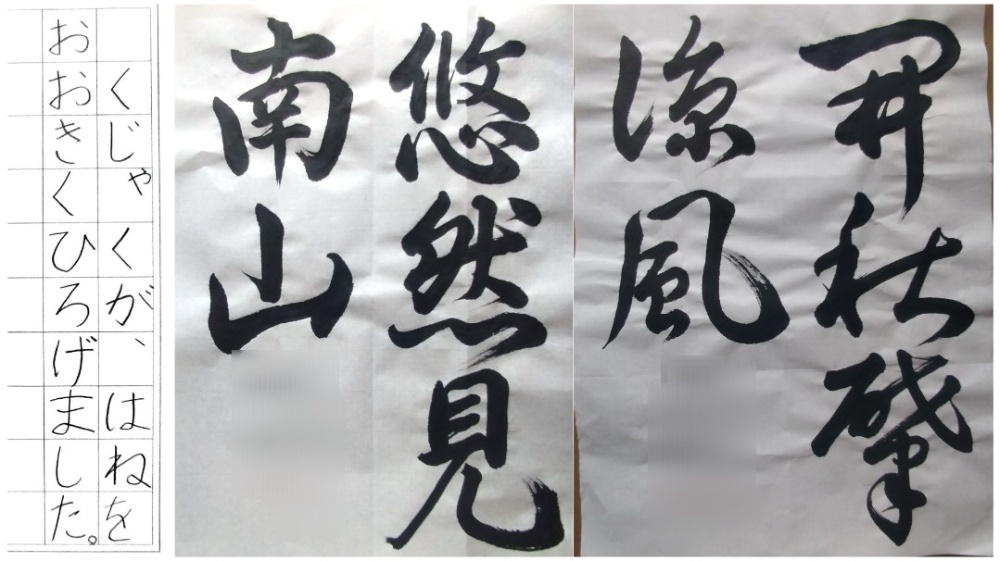 くじゃくが、はねを
おおきくひろげました。
悠然見
南山
開秋肇
涼風